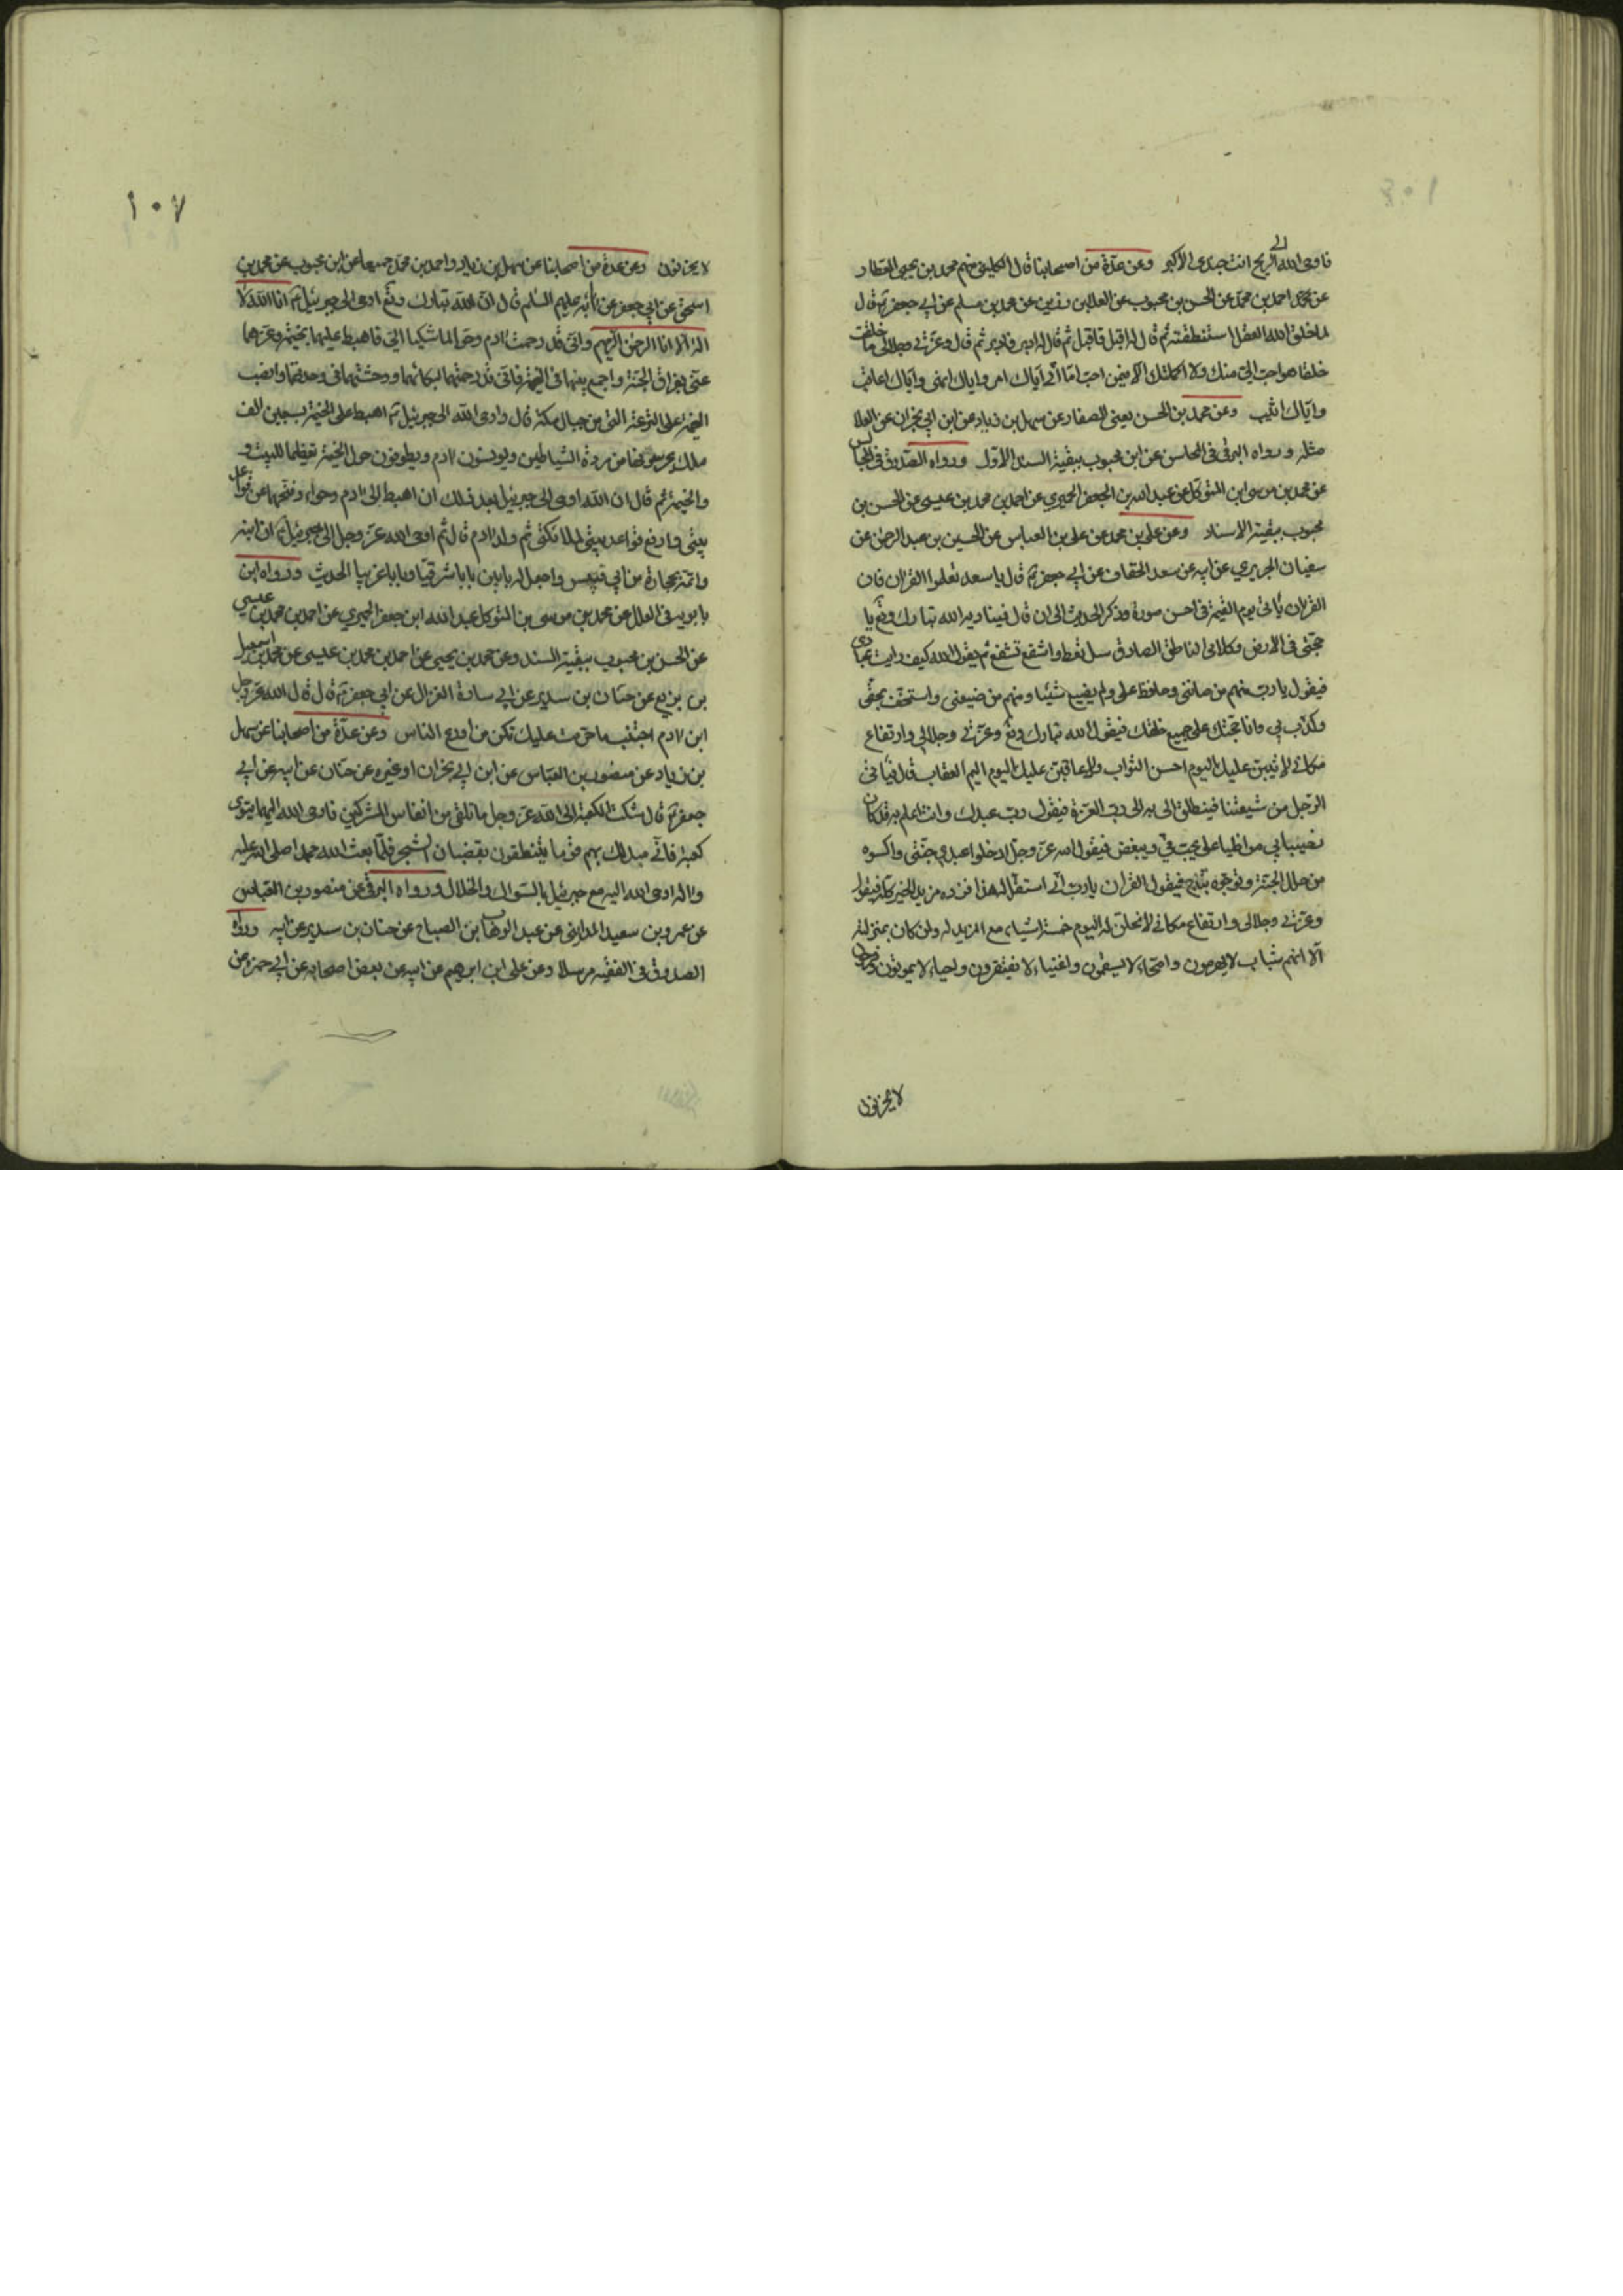 فاوحى الله الى الريح انت جندى الاكبر وعن عدّة من اصحابنا قال الكلينى منهم محمد بن يحيى العطار
عن احمد بن محمد عن الحسن بن محبوب عن العلا بن رزين عن محمد بن مسلم عن ابي جعفر ع قال
لما خلق الله العقل استنطقته ثم قال له اقبل فاقبل ثم قال له ادبر فادبر ثم قال وعزتي وجلالي ما خلقت
خلقا هو احب الىّ منك ولا اكملتك الا فيمن احب اما انّي اياك امر واياك انهى واياك اعاقب
واياك اثيب وعن محمد بن الحسن يعنى الصفار عن سهل بن زياد عن ابن ابي نجران عن العلا
مثله ورواه البرقى فى المحاسن عن ابن محبوب ببقية السند الاول ورواه الصدوق فى المجالس
عن محمد بن موسى ابن المتوكل عن عبد الله بن الجعفر الحميري عن احمد بن محمد بن عيسى عن الحسن بن
محبوب ببقية الاسناد وعن على بن محمد عن على بن العباس عن الحسين بن عبد الرحمن عن
سفيان الجريري عن ابيه عن سعد الخفاف عن ابي جعفر ع قال يا سعد تعلموا القران فان
القران ياتى يوم القيمة فى احسن صورة وذكر الحديث الى ان قال فيناديه الله تبارك وتع يا
حجتى فى الارض وكلامى الناطق الصادق سل تعط واشفع تشفع ثم يقول الله كيف رايت عبادى
فيقول يا رب منهم من صاننى وحافظ على ولم يضيع شيئا ومنهم من ضيعنى واستخف بحقى
وكذب بي وانا حجتك على جميع خلقك فيقول الله تبارك وتع وعزتي وجلالي وارتفاع
مكاني لاثيبن عليك اليوم احسن الثواب ولاعاقبن عليك اليوم اليم العقاب قال فياتى
الرجل من شيعتنا فينطلق الى به الى رب العزة فيقول رب عبدك وانت اعلم به قد كان
نصيبا بي مواظبا على يحب فيّ ويبغض فيقول الله عز وجل ادخلوا عبدى جنتى واكسوه
من حلل الجنة وتوجوه بتاج فيقول القران يا رب انّي استقل له هذا فزده مزيد الخير كله فيقول
وعزتي وجلالى وارتفاع مكاني لانحلن له اليوم خمسة اشياء مع المزيد له ولمن كان بمنزلته
الا انهم شباب لا يهرمون واصحاء لا يسقمون واغنياء لا يفتقرون واحياء لا يموتون وفرحون
لا يحزنون
١٠٧
لا يحزنون وعن عدة من اصحابنا عن سهل بن زياد واحمد بن محمد جميعا عن ابن محبوب عن محمد بن
اسحق عن ابي جعفر عن ابائه عليهم السلم قال ان الله تبارك وتع اوحى الى جبرئيل ع انا الله لا
اله الا انا الرحمن الرحيم وانى قد رحمت ادم وحوا لما شكيا الىّ فاهبط عليهما بخيمة وعزهما
عنى بفراق الجنة واجمع بينهما فى الخيمة فانى قد رحمتهما لبكائهما ووحشتهما فى وحدتهما وانصب
الخيمة على الترعة التى من جبال مكة قال واوحى الله الى جبرئيل ثم اهبط على الخيمة بسبعين الف
ملك يحرسونها من مردة الشياطين ويونسون ادم ويطوفون حول الخيمة تعظيما للبيت
والخيمة ثم قال ان الله اوحى الى جبرئيل بعد ذلك ان اهبط الى ادم وحواء ونحهما عن قواعد
بيتى وارفع قواعد بيتى لملائكتى ثم ولد ادم قال ثم اوحى الله عز وجل الى جبرئيل ع ان ابنه
واتمه بحجارة من ابي قبيس واجعل له بابين بابا شرقيا وبابا غربيا الحديث ورواه ابن
بابويه فى العلل عن محمد بن موسى بن المتوكل عبد الله ابن جعفر الحميري عن احمد بن محمد بن عيسى
عن الحسن بن محبوب ببقية السند وعن محمد بن يحيى عن احمد بن محمد بن عيسى عن محمد بن اسمعيل
بن بزيع عن حنان بن سدير عن ابي سارة الغزال عن ابي جعفر ع قال قال الله عز وجل
ابن ادم اجتنب ما حرمت عليك تكن من اورع الناس وعن عدّة من اصحابنا عن سهل
بن زياد عن منصور بن العباس عن ابن ابي نجران او غيره عن حنان عن ابيه عن ابي
جعفر ع قال شكت الكعبة الى الله عز وجل ما تلقى من انفاس المشركين فاوحى الله اليها قرى
كعبة فانّي مبدلك بهم قوما يتنظفون بقضبان الشجر فلما بعث الله محمدا صلى الله عليه
واله اوحى الله اليه مع جبرئيل بالسواك والخلال ورواه البرقى عن منصور بن العباس
عن عمرو بن سعيد المدائنى عن عبد الوهاب بن الصباح عن حنان بن سدير عن ابيه ورواه
الصدوق فى الفقيه مرسلا وعن على ابن ابرهيم عن ابيه عن بعض اصحابه عن ابي حمزة عن